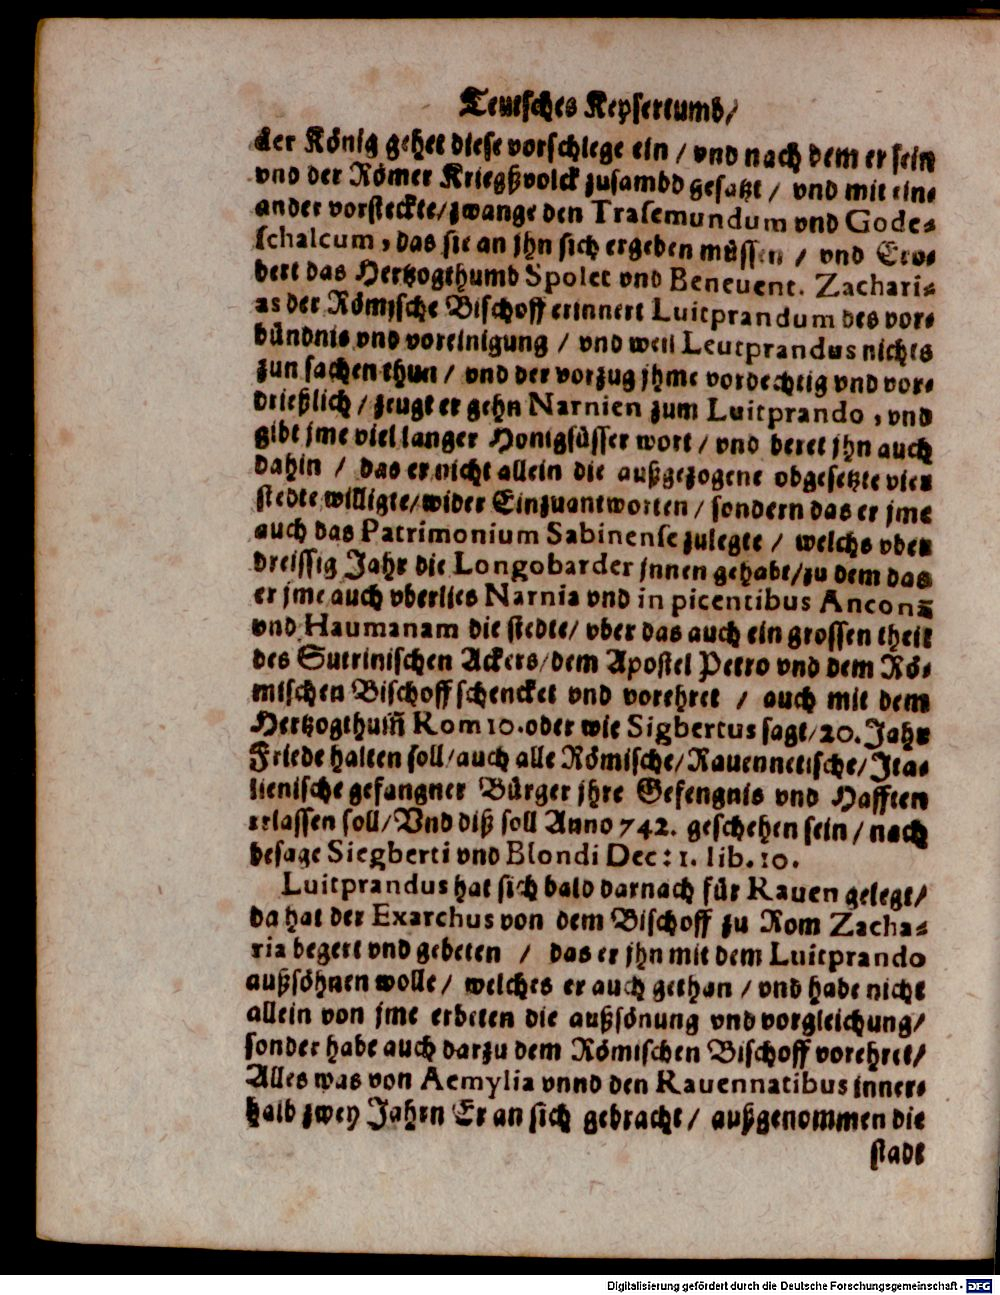 Teutsches Keysertumb/
der König gehet diese vorschlege ein / vnd nach dem er sein
vnd der Römer Kriegßvolck zusambd gesatzt / vnd mit ein⸗
ander vorsteckte/zwange den Trasemundum vnd Gode⸗
schalcum, das sie an jhn sich ergeben müssen / vnd Ero⸗
bert das Hertzogthumb Spolet vnd Beneuent. Zachari⸗
as der Römische Bischoff erinnert Luitprandum des vor⸗
bündnis vnd voreinigung / vnd weil Leutprandus nichts
zun sachen thun / vnd der vorzug jhme vordechtig vnd vor⸗
drießlich / zeugt er gehn Narnien zum Luitprando, vnd
gibt jme viel langer Honigsüsser wort / vnd beret jhn auch
dahin / das er nicht allein die außgezogene obgesetzte vier
stedte willigte/wider Einzuantworten / sondern das er jme
auch das Patrimonium Sabinense zulegte / welchs vber
dreissig Jahr die Longobarder jnnen gehabt/zu dem das
er jme auch vberlies Narnia vnd in picentibus Ancona
vnd Haumanam die stedte/ vber das auch ein grossen theil
des Sutrinischen Ackers/dem Apostel Petro vnd dem Rö⸗
mischen Bischoff schencket vnd vorehret / auch mit dem
Hertzogthum̃ Rom 10. oder wie Sigbertus sagt/20. Jahr
Friede halten soll/auch alle Römische/Rauennetische/Jta⸗
lienische gefangner Bürger jhre Gefengnis vnd Hafften
erlassen soll/Vnd diß soll Anno 742. geschehen sein / nach
besage Siegberti vnd Blondi Dec: 1. lib. 10.
Luitprandus hat sich bald darnach für Rauen gelegt/
da hat der Exarchus von dem Bischoff zu Rom Zacha⸗
ria begert vnd gebeten / das er jhn mit dem Luitprando
außsöhnen wolle / welches er auch gethan / vnd habe nicht
allein von jme erbeten die außsönung vnd vorgleichung/
sonder habe auch darzu dem Römischen Bischoff vorehret/
Alles was von Aemylia vnnd den Rauennatibus inner⸗
halb zwey Jahrn Er an sich gebracht / außgenommen die
stadt
Digitalisierung gefördert durch die Deutsche Forschungsgemeinschaft - DFG